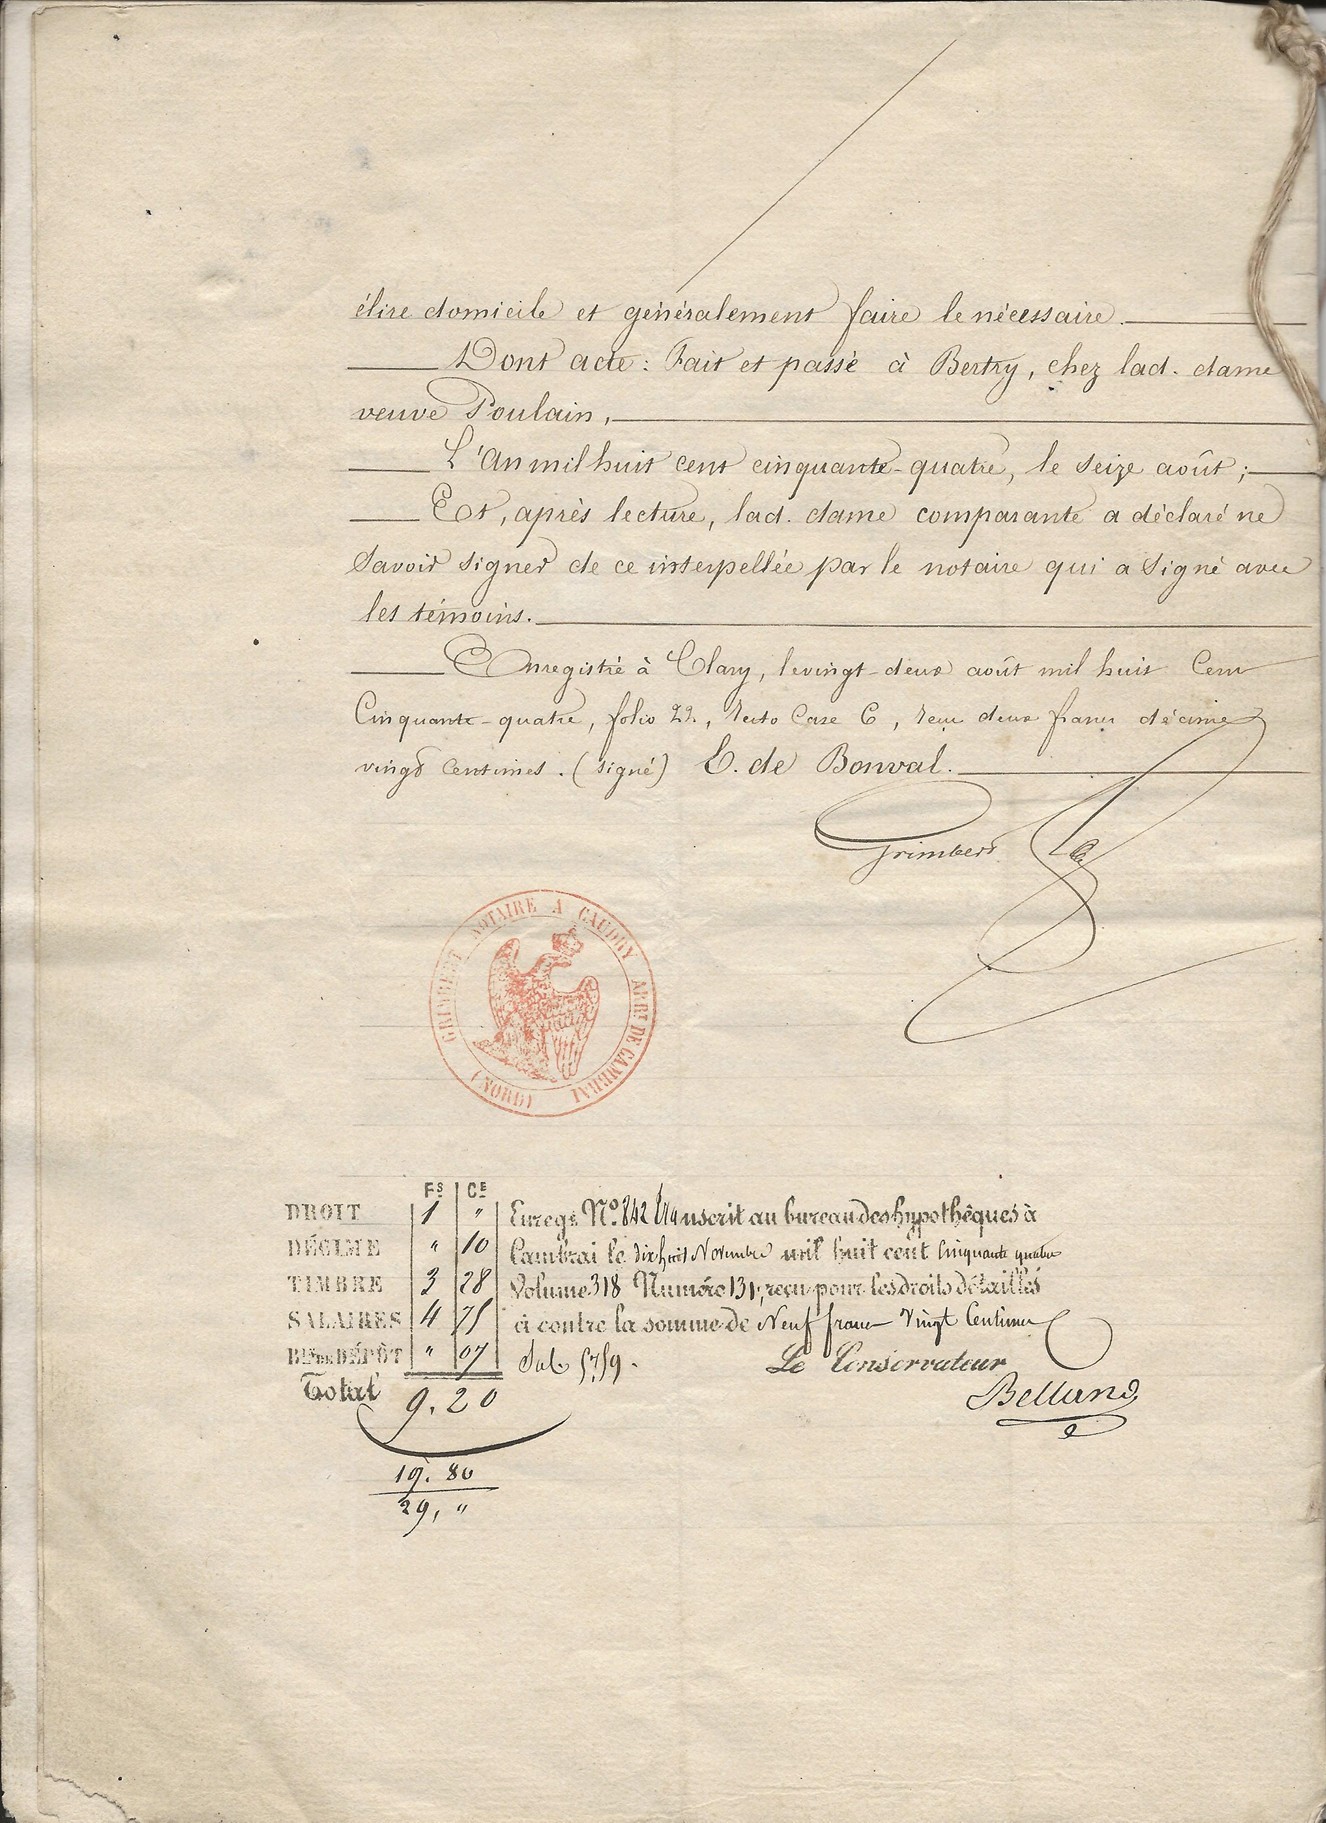 élire domicile et généralement faire le nécessaire.
Dont acte : Fait et passé à Bertry, chez lad. dame
veuve Poulain,
L'An mil huit cent cinquante-quatre, le seize août ;
Et, après lecture, lad. dame comparante a déclaré ne
savoir signer de ce interpellée par le notaire qui a signé avec
les témoins.
Enregistré à Clary, le vingt-deux août mil huit Cent
Cinquante-quatre, folio 22, recto Case 6, reçu deux francs décime
vingt Centimes. (signé) E. de Bonval.
Grimbert
GRIMBERT NOTAIRE A CAUDRY ARRT. DE CAMBRAI
(NORD)
FS CE
DROIT 1 "
DÉCIME " 10
TIMBRE 3 28
SALAIRES 4 75
BIN DE DÉPÔT " 07
Total 9.20
19.80
29, "
Enregé No. 842 transcrit au bureau des hypothèques à
Cambrai le dix huit Novembre mil huit cent cinquante quatre
Volume 318 Numéro 131, reçu pour les droits détaillés
ci contre la somme de Neuf francs Vingt Centimes
Le Conservateur